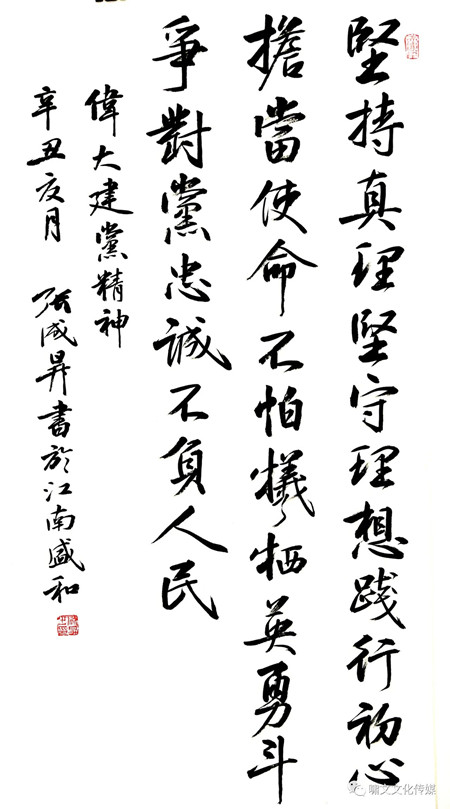 堅持真理堅守理想踐行初心
擔當使命不怕犧牲英勇斗
爭對黨忠誠不負人民
偉大建黨精神
辛丑亥月
張成昇書於江南盛和
啸文文化传媒